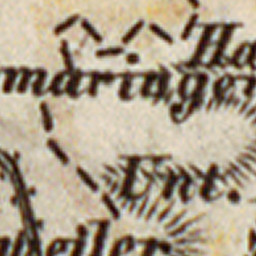 Ha
maringen
Unt.
weiler